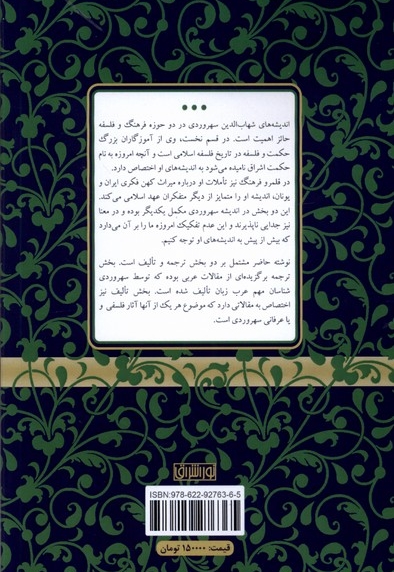 اندیشه‌های شهاب‌الدین سهروردی در دو حوزه فرهنگ و فلسفه
حائز اهمیت است. در قسم نخست، وی از آموزگاران بزرگ
حکمت و فلسفه در تاریخ فلسفه اسلامی است و آنچه امروزه به نام
حکمت اشراق نامیده می‌شود به اندیشه‌های او اختصاص دارد.
در قلمرو فرهنگ نیز تأملات او درباره میراث کهن فکری ایران و
یونان، اندیشه او را متمایز از دیگر متفکران عهد اسلامی می‌کند.
این دو بخش در اندیشه سهروردی مکمل یکدیگر بوده و در معنا
نیز جدایی ناپذیرند و این عدم تفکیک امروزه ما را بر آن می‌دارد
که بیش از پیش به اندیشه‌های او توجه کنیم.
نوشته حاضر مشتمل بر دو بخش ترجمه و تألیف است. بخش
ترجمه برگزیده‌ای از مقالات عربی بوده که توسط سهروردی
شناسان مهم عرب زبان تألیف شده است. بخش تألیف نیز
اختصاص به مقالاتی دارد که موضوع هر یک از آنها آثار فلسفی و
یا عرفانی سهروردی است.
نور اشراق
ISBN:978-622-92763-6-5
قیمت: ۱۵۰۰۰۰ تومان